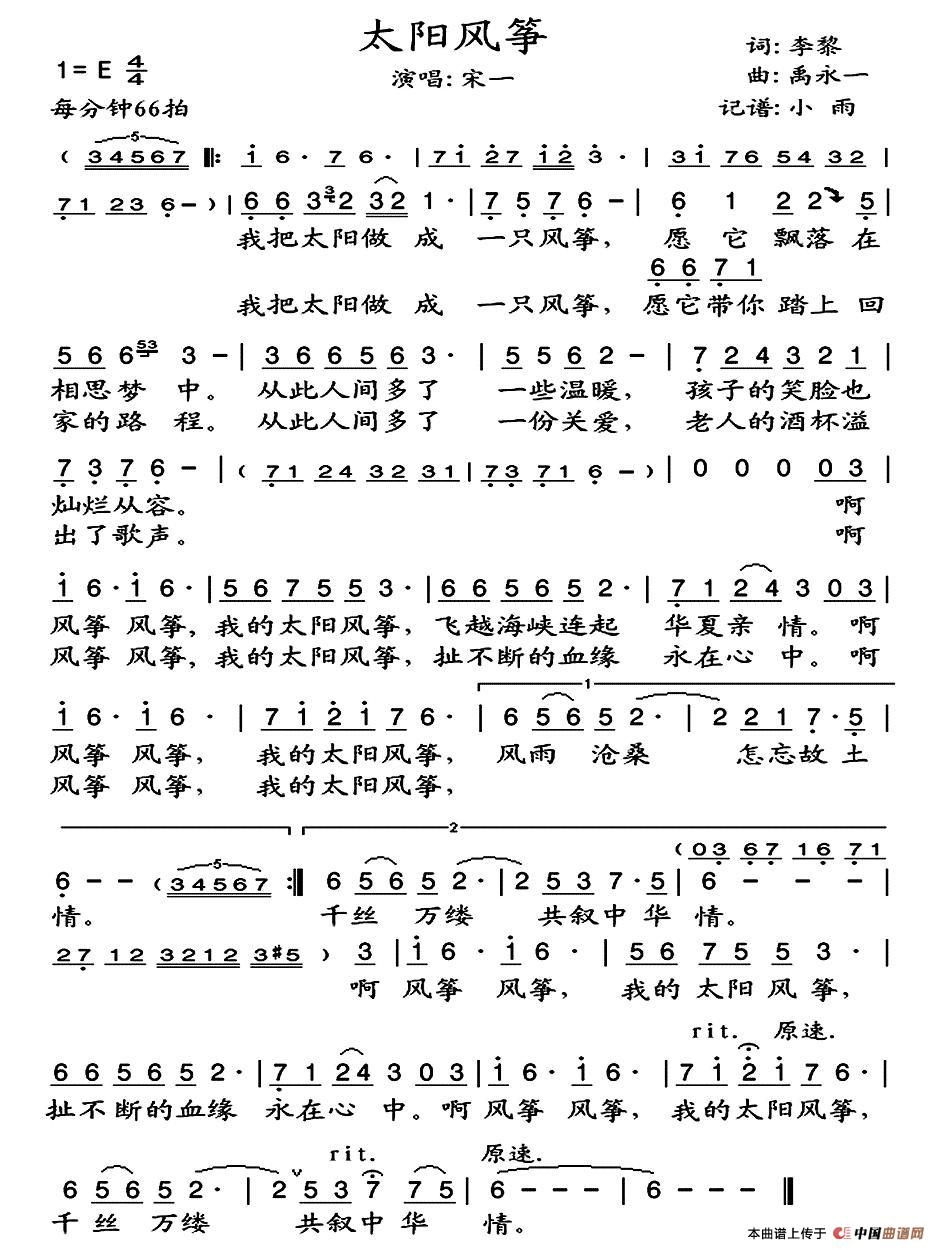 太阳风筝
1=E 4/4
演唱：宋一
词：李黎
曲：禹永一
每分钟66拍
记谱：小 雨
5
( 34567 ‖: i 6· 7 6· | 7i 27 i2 3· | 3i 76 54 32 |
71 23 6– ) | 6 6 3 3 2 32 1· | 7 5 7 6 – | 6 1 2 2 5 |
我把太阳做 成 一只风筝， 愿 它 飘落 在
6 6 7 1
我把太阳做 成 一只风筝， 愿它带你 踏上 回
5 6 6 53 3 – | 3 6 6 5 6 3· | 5 5 6 2 – | 7 2 4 3 2 1 |
相思梦 中。 从此人间多了 一些温暖， 孩子的笑脸也
家的路 程。 从此人间多了 一份关爱， 老人的酒杯溢
7 3 7 6 – | ( 71 24 32 31 | 73 71 6 – ) | 0 0 0 0 3 |
灿烂从容。 啊
出了歌声。 啊
i 6· i 6· | 5 6 7 5 5 3· | 6 6 5 6 5 2· | 7 1 2 4 3 0 3 |
风筝 风筝， 我的太阳风筝， 飞越海峡连起 华夏亲 情。 啊
风筝 风筝， 我的太阳风筝， 扯不断的血缘 永在心 中。 啊
1
i 6· i 6· | 7 i 2 i 7 6· | 6 5 6 5 2· | 2 2 1 7·5 |
风筝 风筝， 我的太阳风筝， 风雨 沧桑 怎忘故 土
风筝 风筝， 我的太阳风筝，
2
( 03 67 16 71
5
6 – – ( 34567 :‖ 6 5 6 5 2· | 2 5 3 7·5 | 6 – – –
情。 千丝 万缕 共叙中 华 情。
27 12 3212 3#5 ) 3 | i 6· i 6· | 5 6 7 5 5 3· |
啊 风筝 风筝， 我的 太阳 风 筝，
rit. 原速.
6 6 5 6 5 2· | 7 1 24 3 0 3 | i 6· i 6· | 7 i 2 i 7 6· |
扯不断的血缘 永在心 中。啊 风筝 风筝， 我的太阳风筝，
rit. 原速.
6 5 6 5 2· | 2 v 5 3 7 7 5 | 6 – – – | 6 – – – ‖
千 丝 万缕 共叙中 华 情。
本曲谱上传于 中国曲谱网